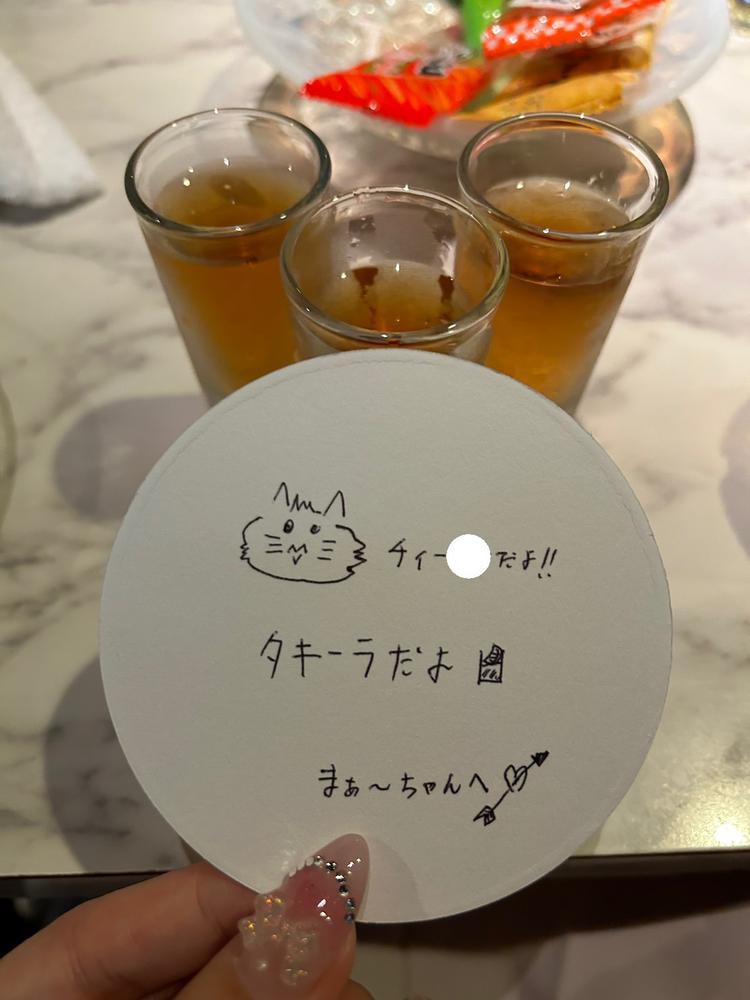 チィー だよ!!
タキーラだよ
まぁ〜ちゃんへ